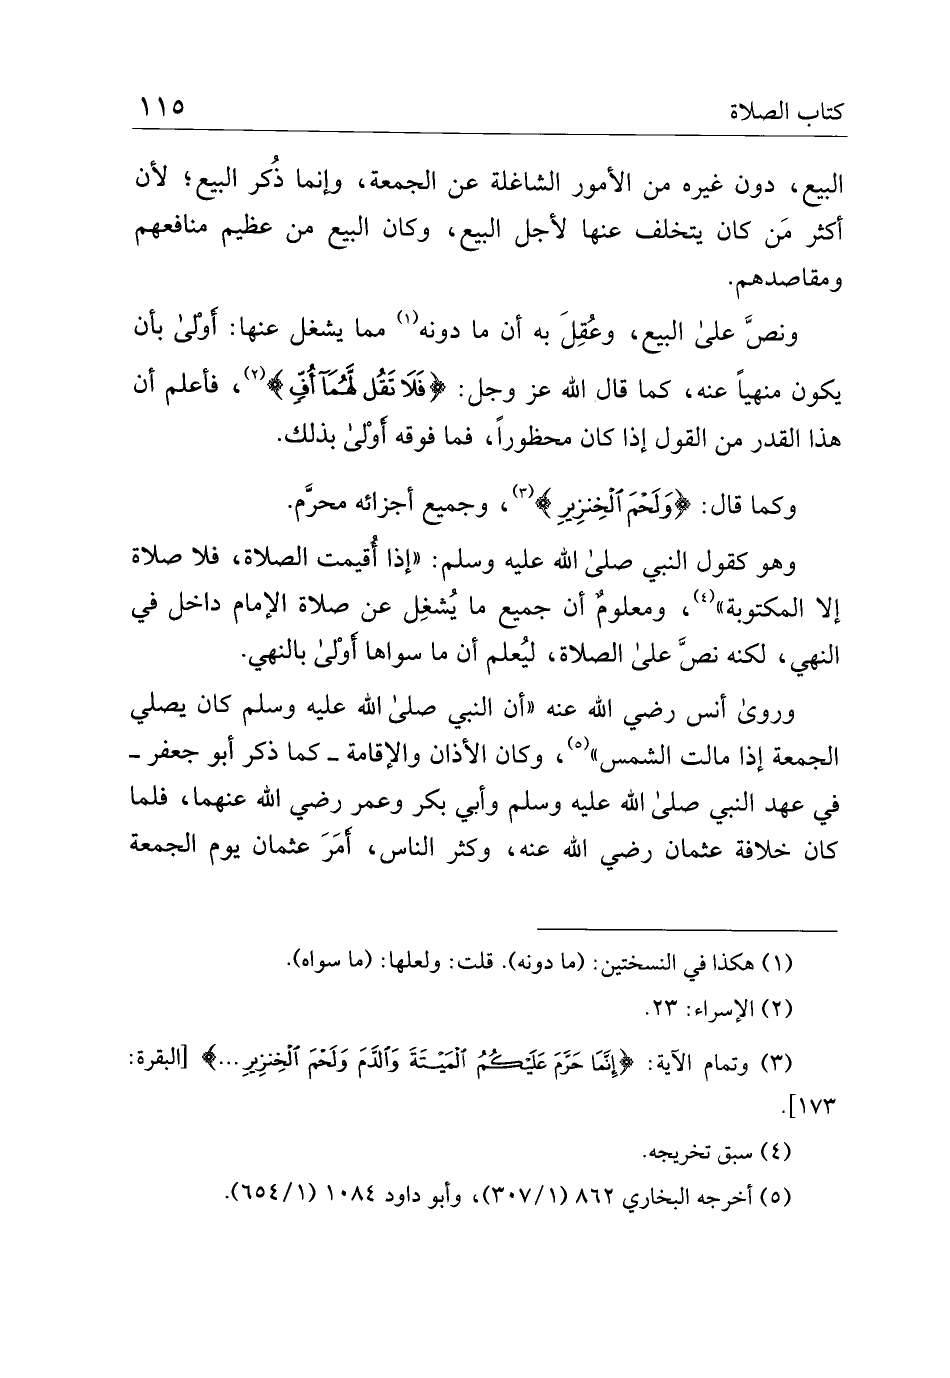 كتاب الصلاة ١١٥
البيع، دون غيره من الأمور الشاغلة عن الجمعة، وإنما ذُكر البيع؛ لأن
أكثر مَن كان يتخلف عنها لأجل البيع، وكان البيع من عظيم منافعهم
ومقاصدهم.
ونصَّ علىٰ البيع، وعُقِلَ به أن ما دونه(١) مما يشغل عنها: أَوْلىٰ بأن
يكون منهياً عنه، كما قال الله عز وجل: ﴿فَلَا تَقُل لَّهُمَآ أُفٍّ﴾(٢)، فأعلم أن
هذا القدر من القول إذا كان محظوراً، فما فوقه أَوْلىٰ بذلك.
وكما قال: ﴿وَلَحْمَ ٱلْخِنزِيرِ﴾(٣)، وجميع أجزائه محرَّم.
وهو كقول النبي صلىٰ الله عليه وسلم: «إذا أُقيمت الصلاة، فلا صلاة
إلا المكتوبة»(٤)، ومعلومٌ أن جميع ما يُشغِل عن صلاة الإمام داخل في
النهي، لكنه نصَّ علىٰ الصلاة، ليُعلم أن ما سواها أَوْلىٰ بالنهي.
وروىٰ أنس رضي الله عنه «أن النبي صلىٰ الله عليه وسلم كان يصلي
الجمعة إذا مالت الشمس»(٥)، وكان الأذان والإقامة ـ كما ذكر أبو جعفر ـ
في عهد النبي صلىٰ الله عليه وسلم وأبي بكر وعمر رضي الله عنهما، فلما
كان خلافة عثمان رضي الله عنه، وكثر الناس، أَمَرَ عثمان يوم الجمعة
(١) هكذا في النسختين: (ما دونه). قلت: ولعلها: (ما سواه).
(٢) الإسراء: ٢٣.
(٣) وتمام الآية: ﴿إِنَّمَا حَرَّمَ عَلَيْكُمُ ٱلْمَيْتَةَ وَٱلدَّمَ وَلَحْمَ ٱلْخِنزِيرِ...﴾ [البقرة:
١٧٣].
(٤) سبق تخريجه.
(٥) أخرجه البخاري ٨٦٢ (٣٠٧/١)، وأبو داود ١٠٨٤ (٦٥٤/١).